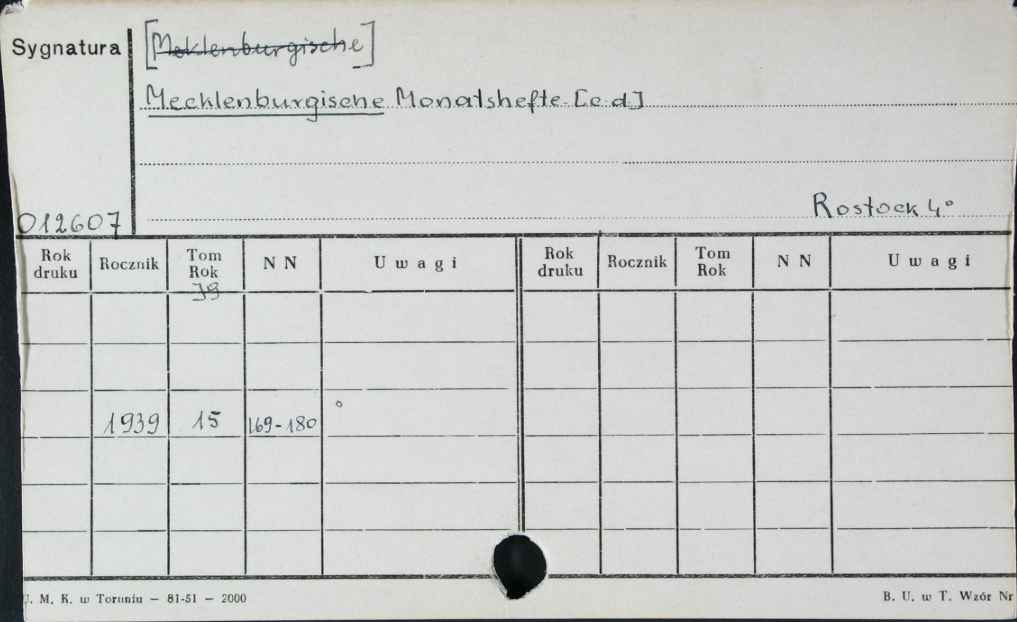 Sygnatura
[Meklenburgische]
Mecklenburgische Monatshefte. [c.d]
Rostock 4°
012607
Rok druku Rocznik Tom Rok N N Uwagi Rok druku Rocznik Tom Rok N N Uwagi
Jg
1939 15 169-180 °
U. M. K. w Toruniu — 81-51 — 2000 B. U. w T. Wzór Nr